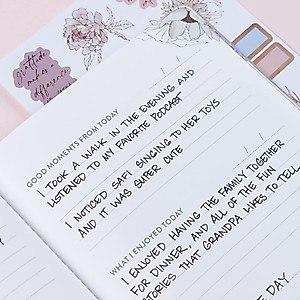 gratitude
makes a
difference
GOOD MOMENTS FROM TODAY
I TOOK A WALK IN THE EVENING AND
LISTENED TO MY FAVORITE PODCAST
I NOTICED SAFI SINGING TO HER TOYS
AND IT WAS SUPER CUTE
WHAT I ENJOYED TODAY
I ENJOYED HAVING THE FAMILY TOGETHER
FOR DINNER, AND ALL OF THE FUN
STORIES THAT GRANDPA LIKES TO TELL